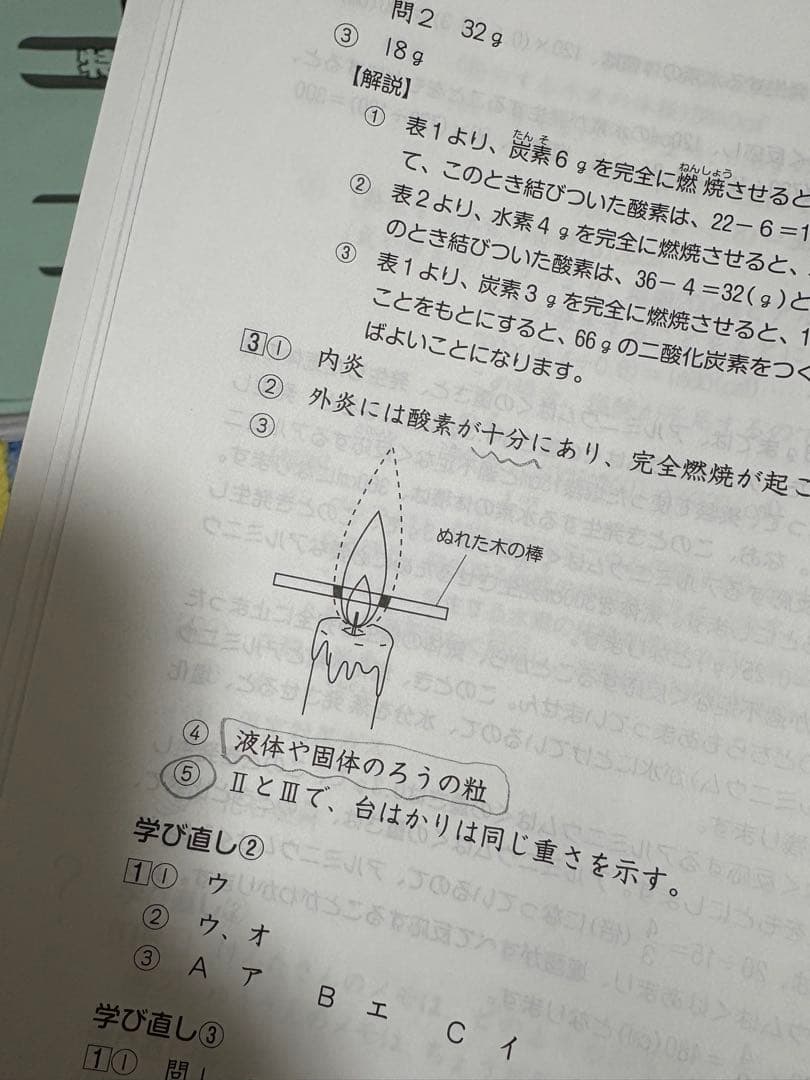 特
問2 32g
③ 18g
【解説】
① 表1より、炭素6gを完全に燃焼させると
たんそ
ねんしょう
て、このとき結びついた酸素は、22－6＝1
② 表2より、水素4gを完全に燃焼させると、
のとき結びついた酸素は、36－4＝32(g)と
③ 表1より、炭素3gを完全に燃焼させると、1
ことをもとにすると、66gの二酸化炭素をつく
ばよいことになります。
3① 内炎
② 外炎には酸素が十分にあり、完全燃焼が起こ
③
ぬれた木の棒
④ 液体や固体のろうの粒
⑤ ⅡとⅢで、台はかりは同じ重さを示す。
学び直し②
1① ウ
② ウ、オ
③ A ア B エ C イ
学び直し③
1① 問1